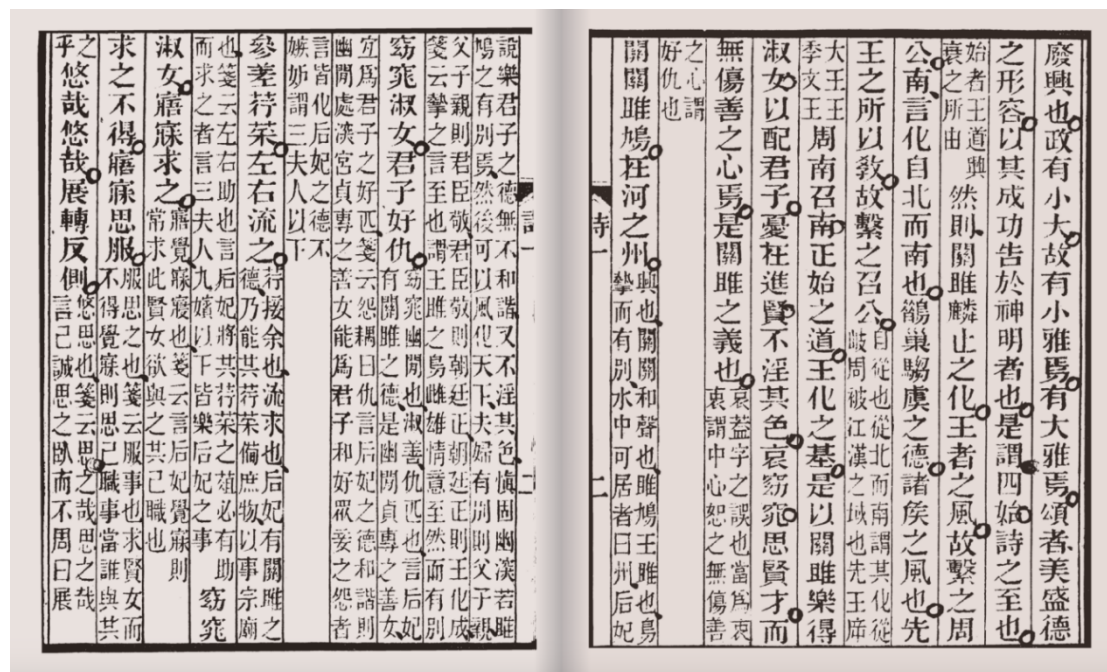 廢興也政有小大故有小雅焉有大雅焉頌者美盛德
之形容以其成功告於神明者也是謂四始詩之至也
始者王道興
衰之所由
然則關雎麟止之化王者之風故繫之周
公南言化自北而南也鵲巢騶虞之德諸侯之風也先
王之所以敎故繫之召公
自從也從北而南謂其化從
岐周被江漢之域也先王㡿
大王王
季文王
周南召南正始之道王化之基是以關雎樂得
淑女以配君子憂在進賢不淫其色哀窈窕思賢才而
無傷善之心焉是關雎之義也
哀蓋字之誤也當爲衷
衷謂中心恕之無傷善
之心謂
好仇也
關關雎鳩在河之州
興也關關和聲也雎鳩王雎也鳥
摯而有別水中可居者曰州后妃
詩一
二
說樂君子之德無不和諧又不淫其色愼固幽深若雎
鳩之有別焉然後可以風化天下夫婦有別則父子親
父子親則君臣敬君臣敬則朝廷正朝廷正則王化成
箋云摯之言至也謂王雎之鳥雌雄情意至然而有別
窈窕淑女君子好仇
窈窕幽閒也淑善仇匹也言后妃
有關雎之德是幽閒貞專之善女
宜爲君子之好匹箋云怨耦曰仇言后妃之德和諧則
幽閒處深宮貞專之善女能爲君子和好衆妾之怨者
言皆化后妃之德不
嫉妒謂三夫人以下
參差荇菜左右流之
荇接余也流求也后妃有關雎之
德乃能共荇菜備庶物以事宗廟
也箋云左右助也言后妃將共荇菜之葅必有助
而求之者言三夫人九嬪以下皆樂后妃之事
窈窕
淑女寤寐求之
寤覺寐寢也箋云言后妃覺寐則
常求此賢女欲與之共己職也
求之不得寤寐思服
服思之也箋云服事也求賢女而
不得覺寐則思己職事當誰與共
之
乎
悠哉悠哉展轉反側
悠思也箋云思之哉思之哉
言己誠思之臥而不周曰展